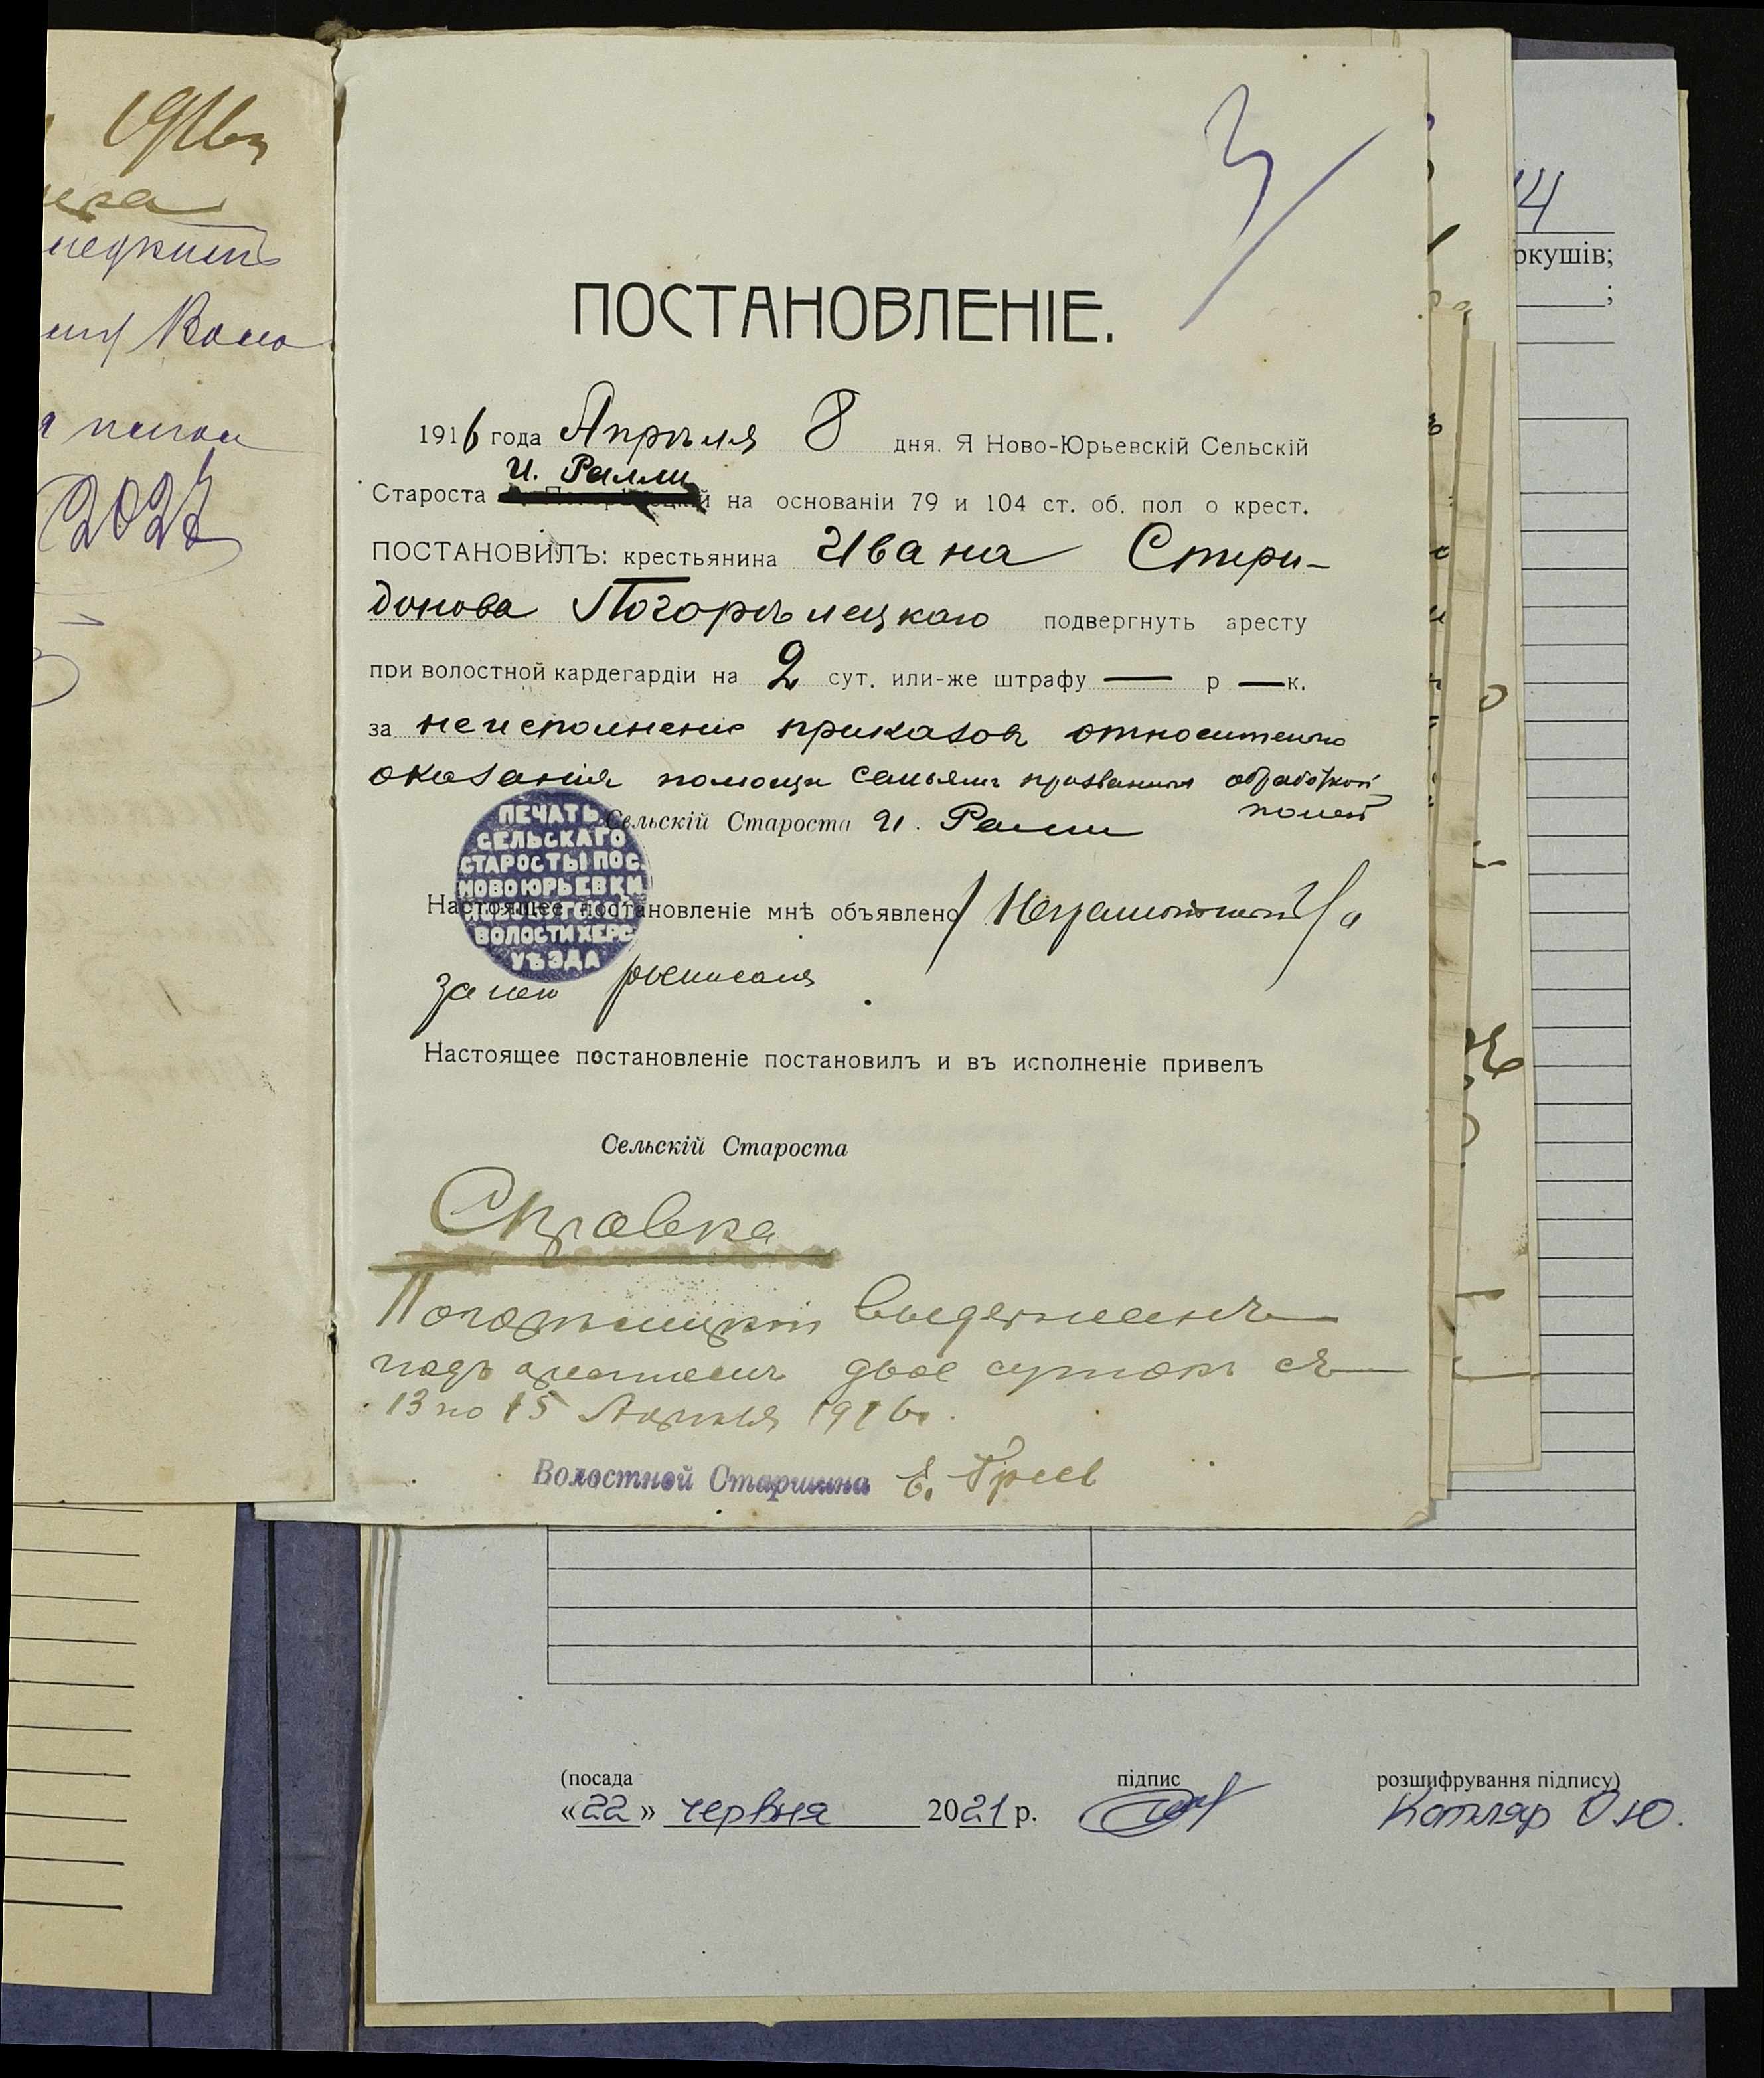 1916 г.
2027
3
ПОСТАНОВЛЕНІЕ.
1916 года Апрѣля 8 дня. Я Ново-Юрьевскій Сельскій
И. Ралли
Староста на основаніи 79 и 104 ст. об. пол о крест.
ПОСТАНОВИЛЪ: крестьянина Ивана Спири-
донова Погорѣлецкаго подвергнуть аресту
при волостной кардегардіи на 2 сут. или-же штрафу — р — к.
за неисполнение приказов относительно
оказания помощи семьямъ призванных обработкой
полей
Сельскій Староста И. Ралли
ПЕЧАТЬ
СЕЛЬСКАГО
СТАРОСТЫ ПОС.
НОВОЮРЬЕВКИ
ВОЛОСТИ ХЕРС
УѢЗДА
Настоящее постановленіе мнѣ объявлено / Неграмотный / и
за него росписался
Настоящее постановленіе постановилъ и въ исполненіе привелъ
Сельскій Староста
Справка
Погорѣлецкій выдержанъ
подъ арестомъ двое сутокъ съ
13 по 15 Апрѣля 1916 г.
Волостной Старшина Е.
14
ркушів;
;
(посада підпис розшифрування підпису)
«22» червня 2021 р. Котляр О.Ю.